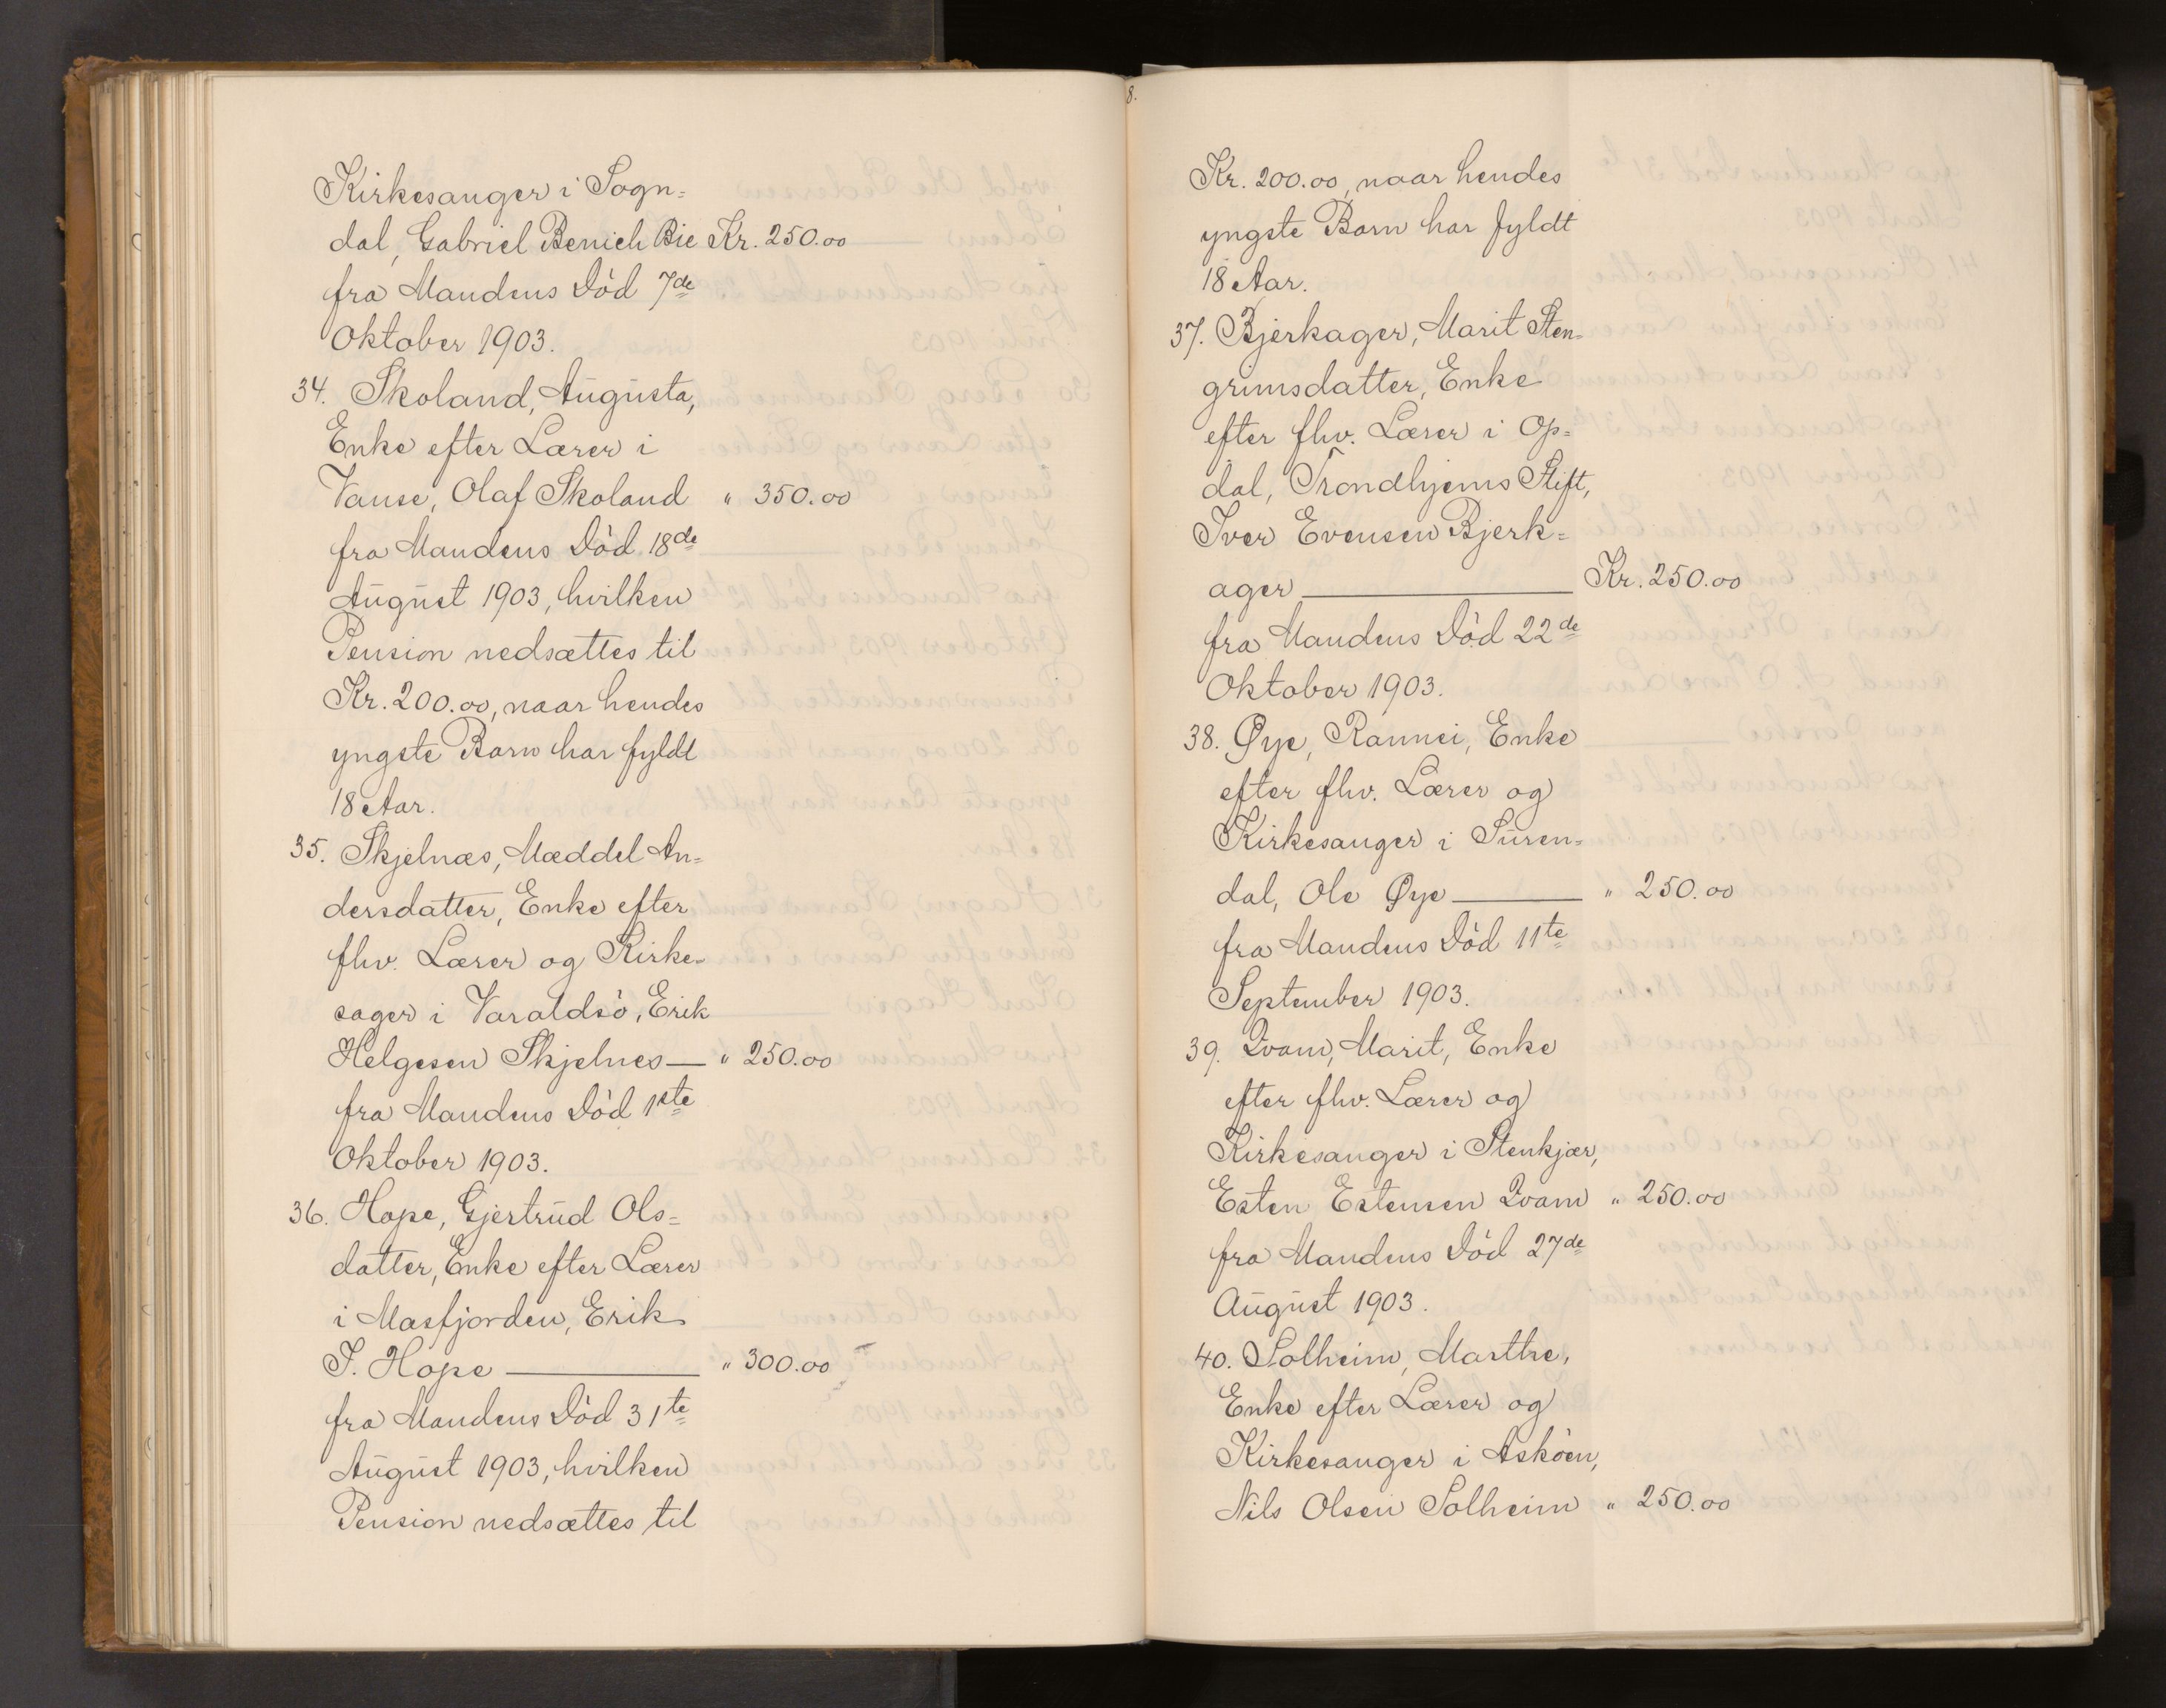 Kirkesanger i Sogn=
dal, Gabriel Benich Bie Kr. 250.00
fra Mandens Död 7de
Oktober 1903.
34. Skoland, Augusta,
Enke efter Lærer i
Vanse, Olaf Skoland " 350.00
fra Mandens Död 18de
August 1903, hvilken
Pension nedsættes til
Kr. 200.00, naar hendes
yngste Barn har fyldt
18 Aar.
35. Skjelnæs, Mæddel An=
dersdatter, Enke efter
fhv. Lærer og Kirke=
sager i Varaldsö, Erik
Helgesen Skjelnes — " 250.00
fra Mandens Död 1ste
Oktober 1903.
36. Hope, Gjertrud Ols=
datter, Enke efter Lærer
i Masfjorden, Erik
J. Hope — " 300.00
fra Mandens Död 31te
August 1903, hvilken
Pension nedsættes til
8.
Kr. 200.00, naar hendes
yngste Barn har fyldt
18 Aar.
37. Bjerkager, Marit Sten=
grimsdatter, Enke
efter fhv. Lærer i Op=
dal, Trondhjems Stift,
Iver Evensen Bjerk=
ager — Kr. 250.00
fra Mandens Död 22de
Oktober 1903.
38. Øye, Rannei, Enke
efter fhv. Lærer og
Kirkesanger i Suren=
dal, Ole Øye — " 250.00
fra Mandens Död 11te
September 1903.
39. Qvam, Marit, Enke
efter fhv. Lærer og
Kirkesanger i Stenkjær,
Esten Estensen Qvam " 250.00
fra Mandens Död 27de
August 1903.
40. Solheim, Marthe,
Enke efter Lærer og
Kirkesanger i Asköen,
Nils Olsen Solheim " 250.00